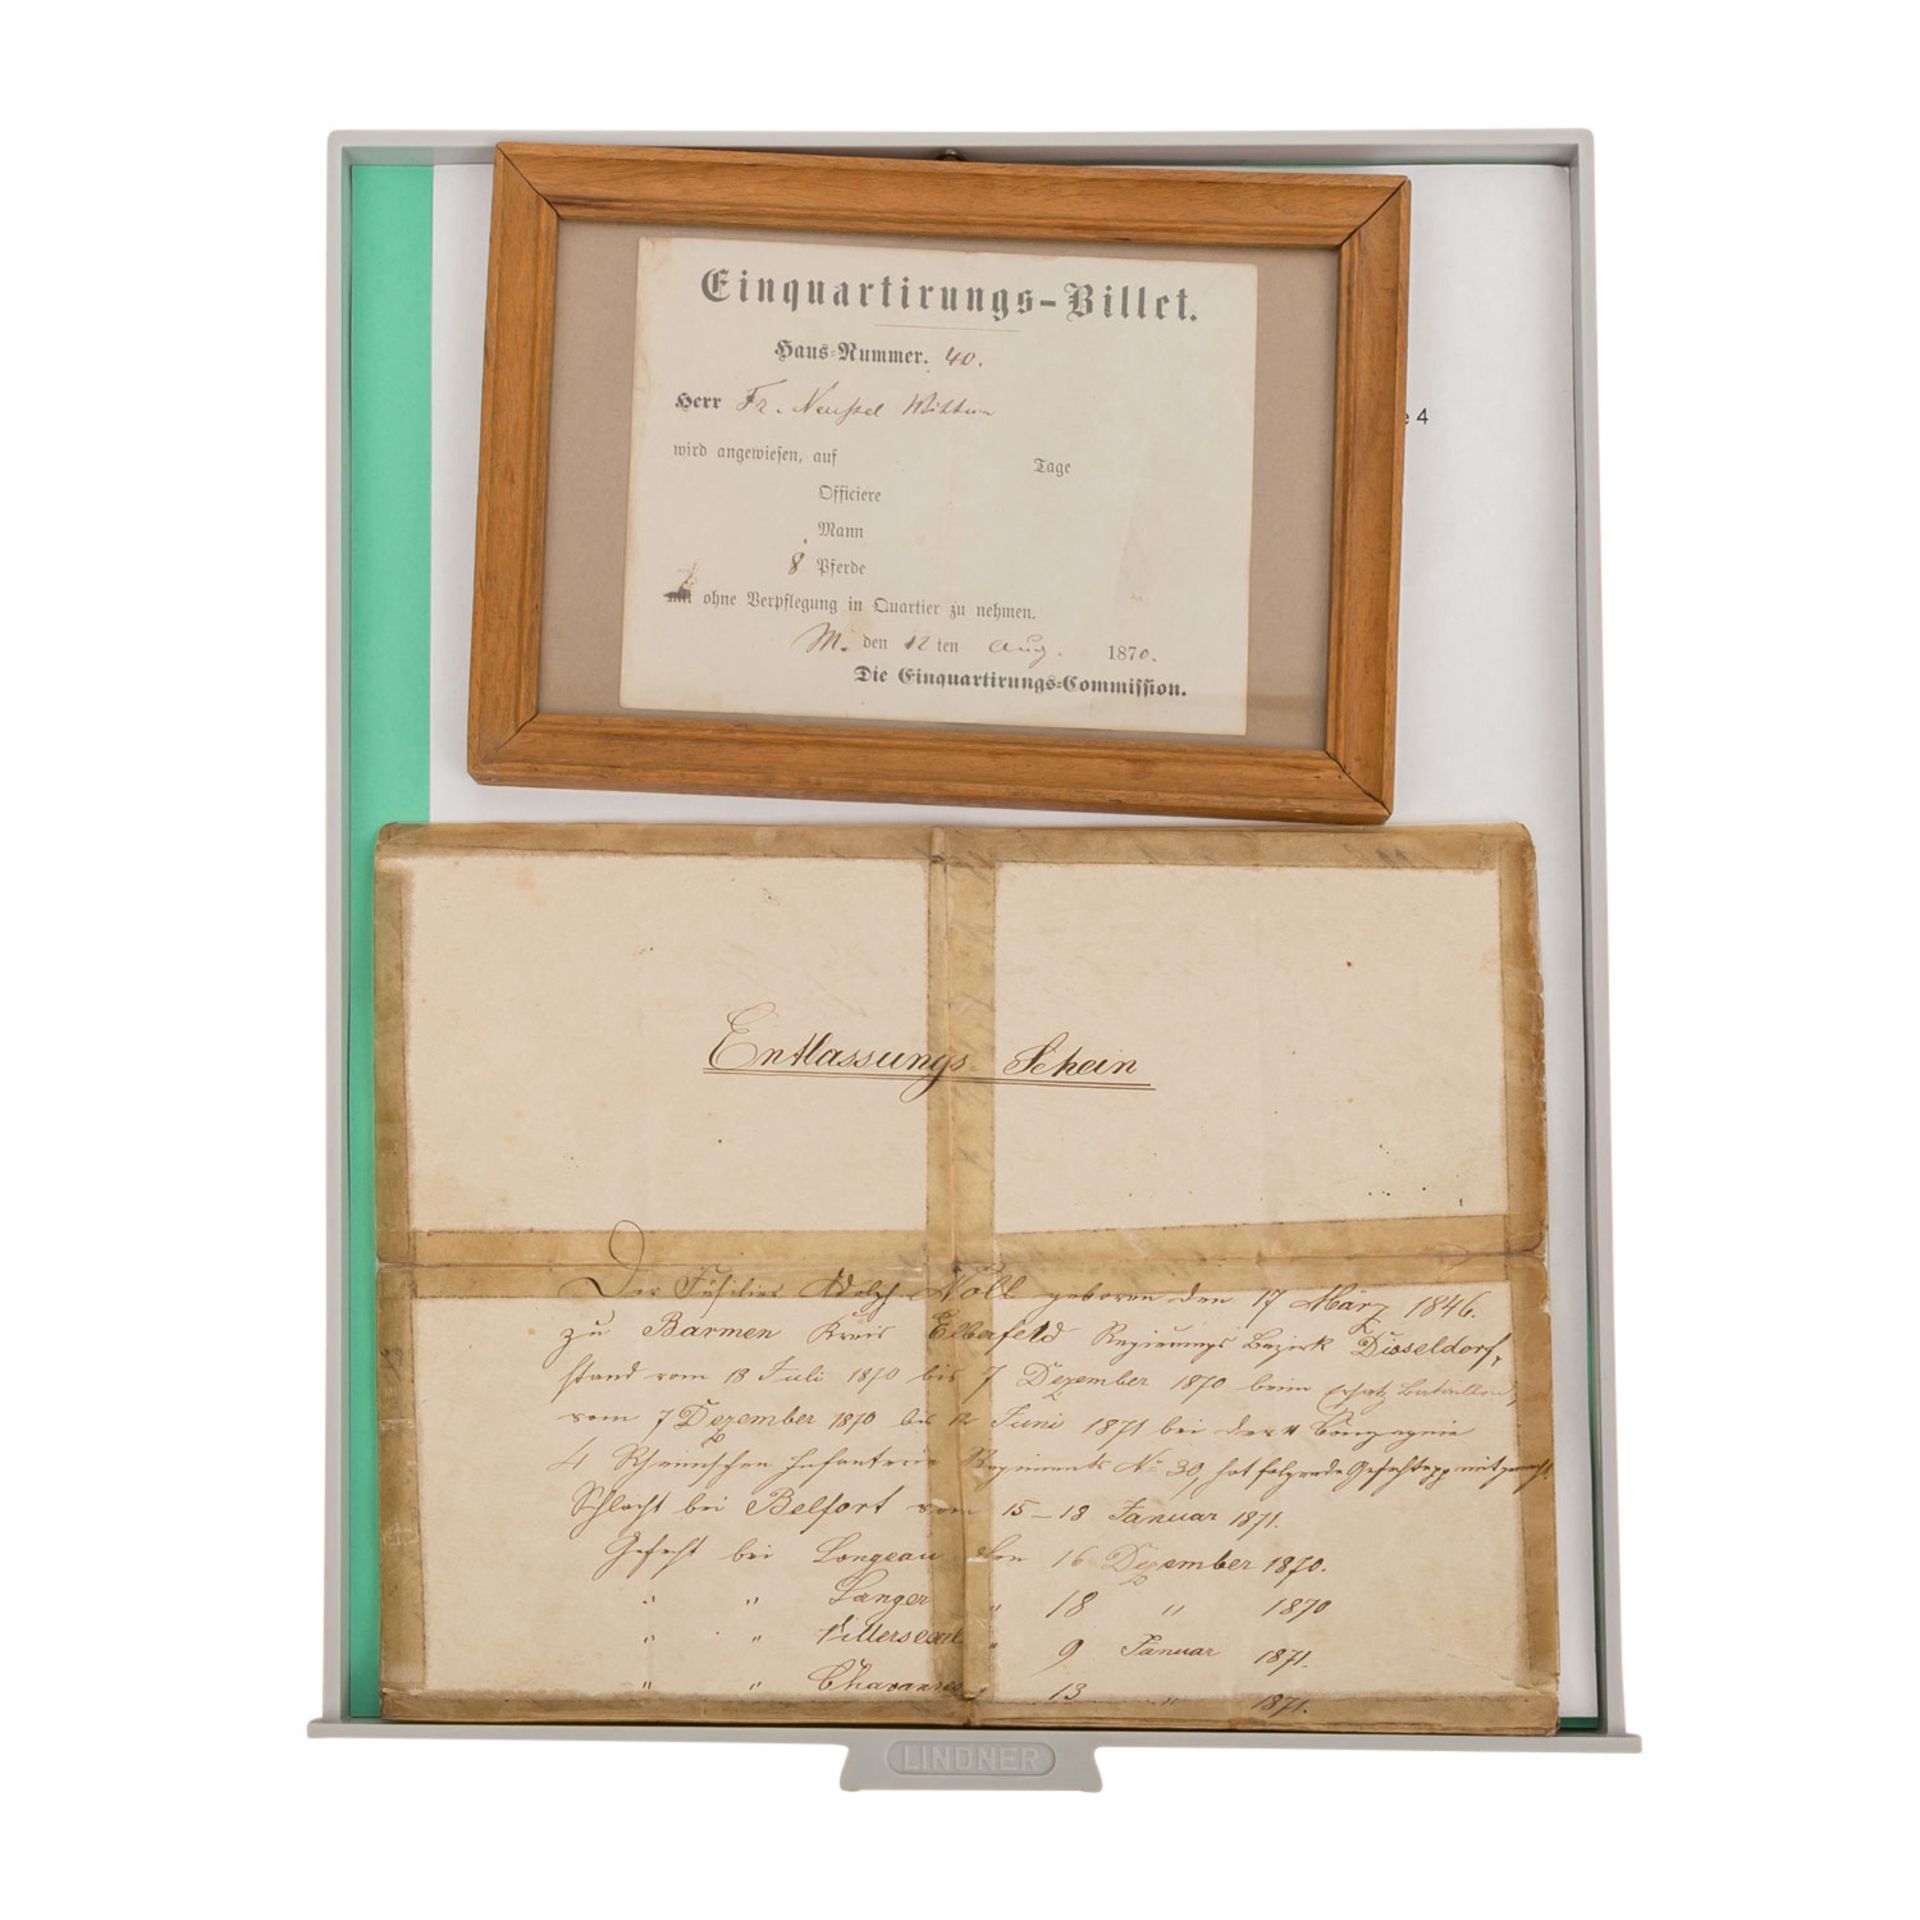 Einquartirungs-Billet.
Haus-Nummer. 40.
Herr Fr. Neussel
wird angewiesen, auf Tage
Officiere
Mann
8 Pferde
mit ohne Verpflegung in Quartier zu nehmen.
M. den 12 ten Aug. 1870.
Die Einquartirungs-Commission.
4
Entlassungs Schein
Der Füsilier Adolph Noll geboren den 17 März 1846.
zu Barmen Kreis Elberfeld Regierungs Bezirk Düsseldorf,
stand vom 18 Juli 1870 bis 7 Dezember 1870 beim Ersatz Bataillon,
vom 7 Dezember 1870 bis 12 Juni 1871 bei der 11 Compagnie
4 Rheinischen Infanterie Regiments No 30, hat folgende Gefechte mitgemacht.
Schlacht bei Belfort vom 15-18 Januar 1871.
Gefecht bei Longeau den 16 Dezember 1870.
" " Langer " 18 " 1870
" " Villersexel " 9 Januar 1871.
" " Chavannes " 13 " 1871.
LINDNER